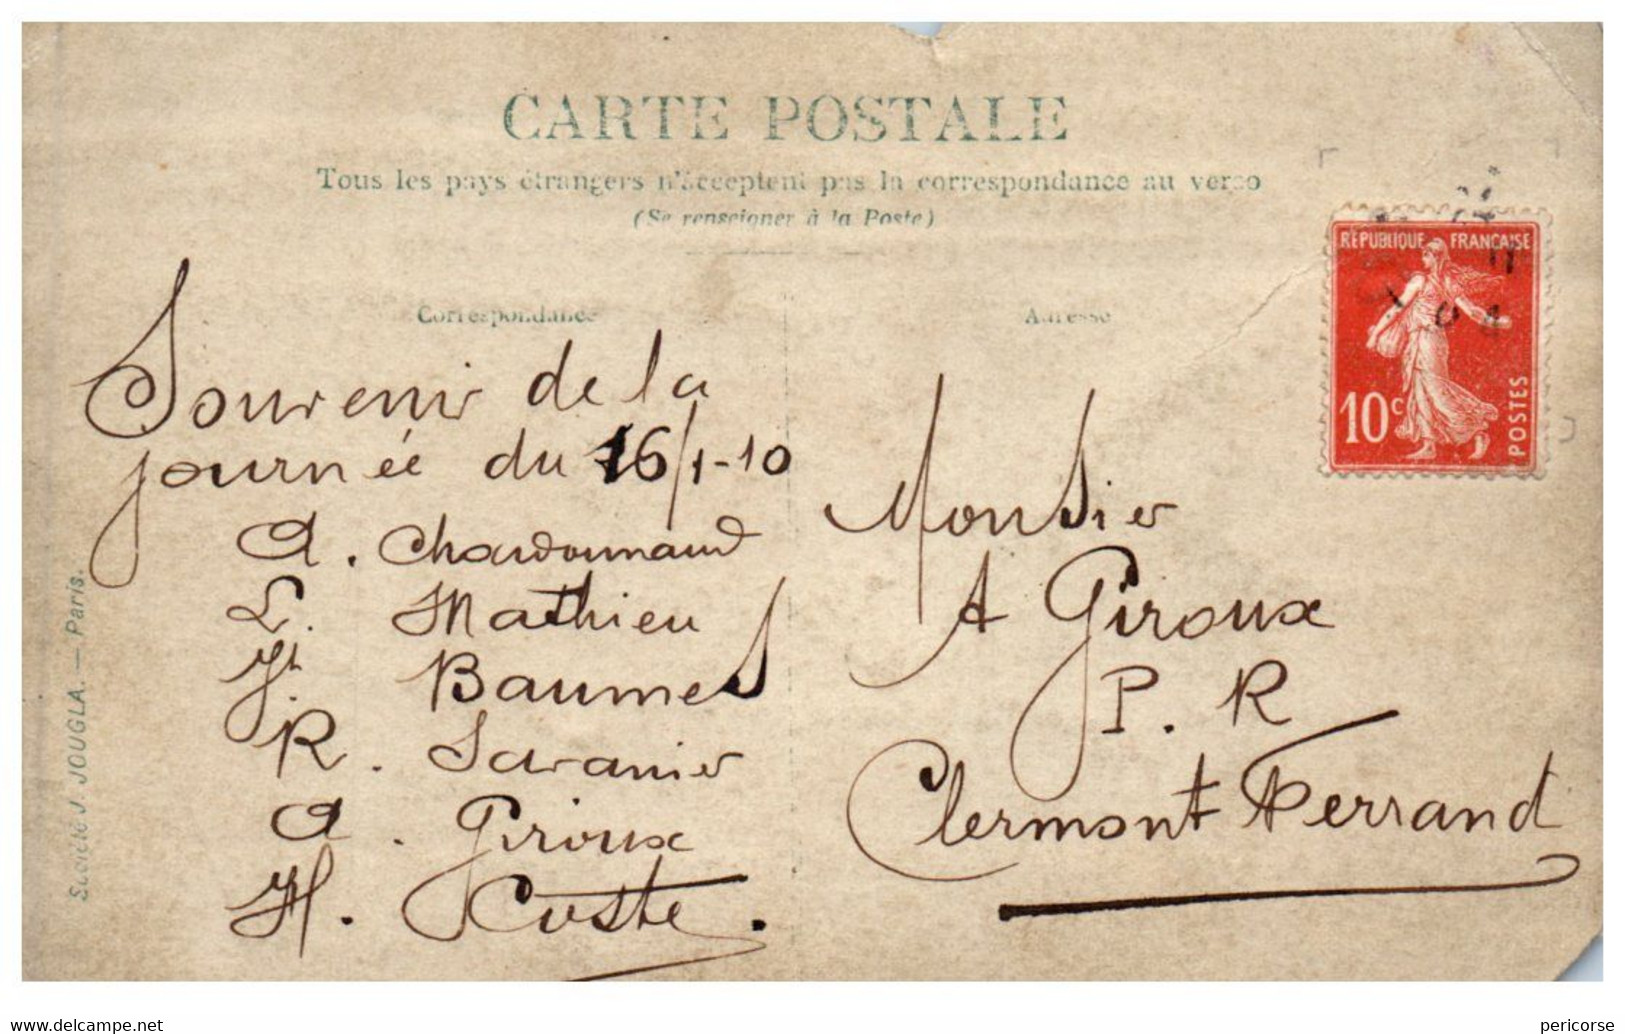 CARTE POSTALE
Tous les pays étrangers n'acceptent pas la correspondance au verso
(Se renseigner à la Poste)
Correspondance
Adresse
RÉPUBLIQUE FRANÇAISE
10c
POSTES
Souvenir de la
journée du 16/1-10
A. Chardonnaud
L. Mathieu
Jh. Baumel
R. Saranier
A. Giroux
H. Coste.
Monsier
A Giroux
P. R
Clermont Ferrand
Société J JOUGLA. — Paris.
www.delcampe.net
pericorse